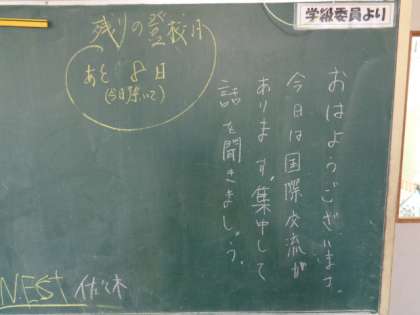 学級委員より
おはようございます。
今日は国際交流が
あります。集中して
話を聞きましょう。
残りの登校日
あと 8日
(今日除いて)
N.EST 佐々木